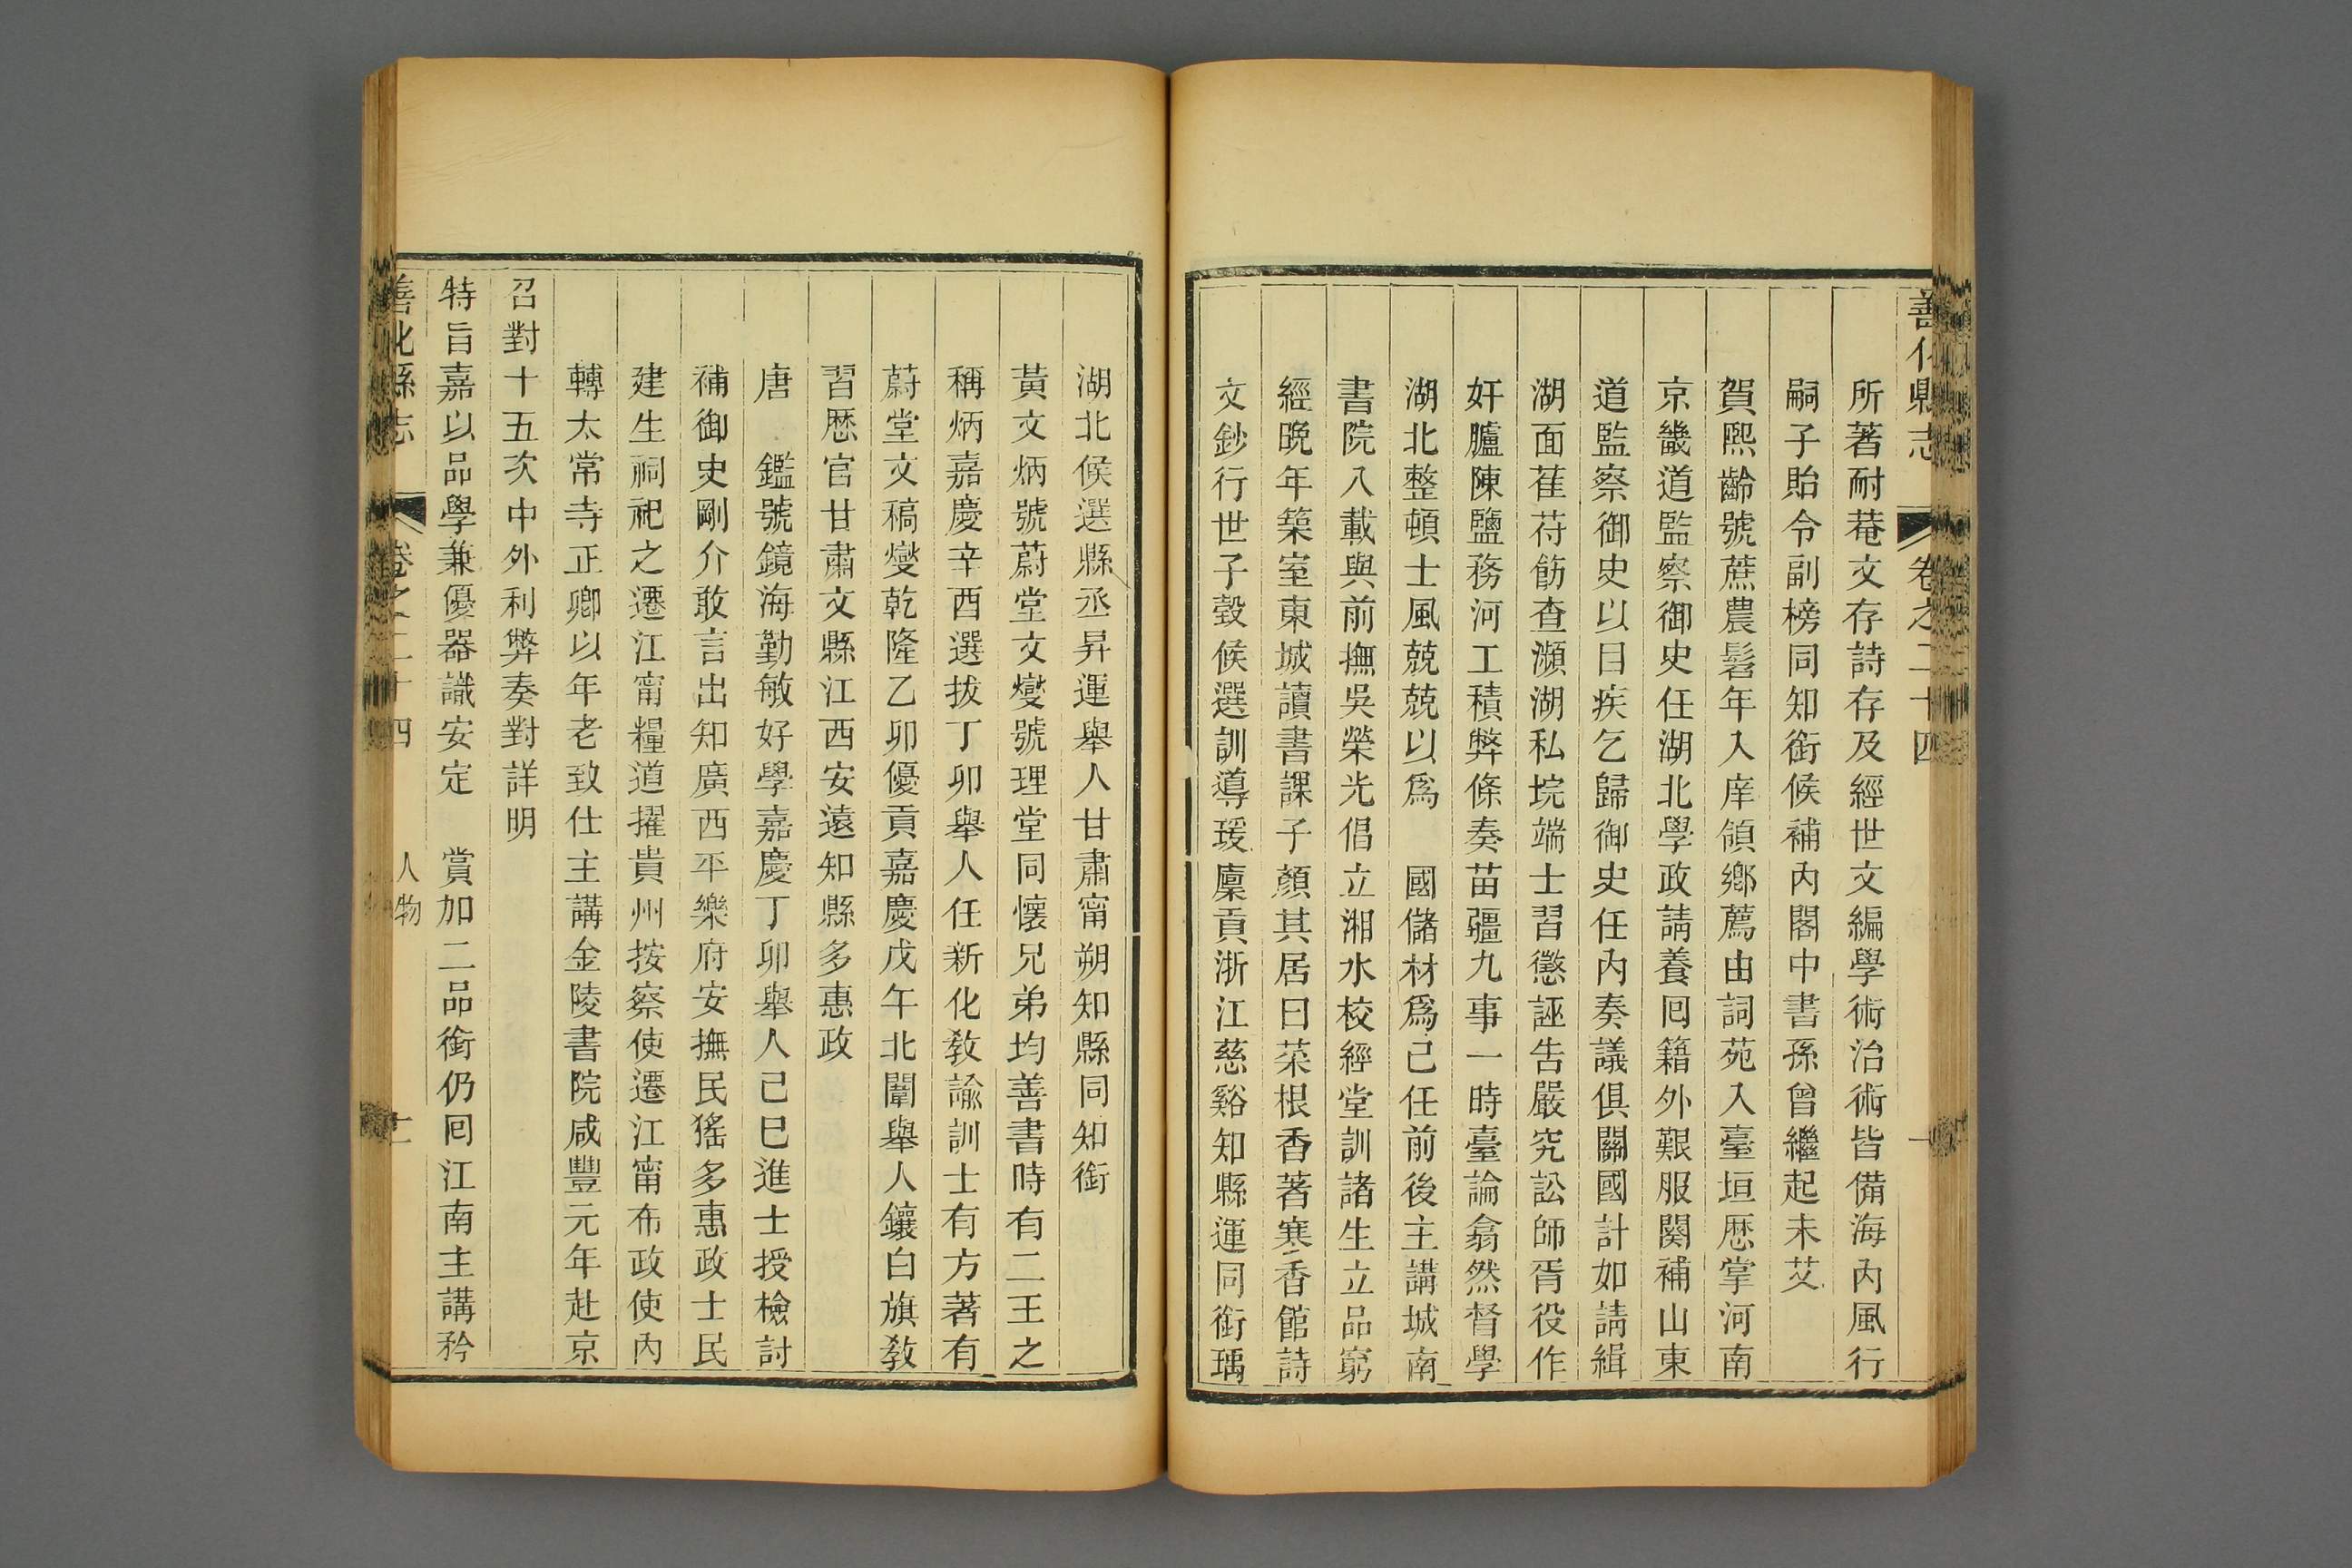 善化縣志 卷之二十四
所著耐菴文存詩存及經世文編學術治術皆備海內風行
嗣子貽令副榜同知銜候補內閣中書孫曾繼起未艾
賀熙齡號蔗農髫年入庠領鄉薦由詞苑入臺垣歷掌河南
京畿道監察御史任湖北學政請養囘籍外艱服闋補山東
道監察御史以目疾乞歸御史任內奏議俱關國計如請緝
湖面萑苻飭查瀕湖私垸端士習懲誣告嚴究訟師胥役作
奸臚陳鹽務河工積弊條奏苗疆九事一時臺論翕然督學
湖北整頓士風兢兢以爲 國儲材爲己任前後主講城南
書院八載與前撫吳榮光倡立湘水校經堂訓諸生立品窮
經晚年築室東城讀書課子顏其居曰菜根香著寒香館詩
文鈔行世子瑴候選訓導瑗廩貢浙江慈谿知縣運同銜瑀
湖北候選縣丞昇運舉人甘肅甯朔知縣同知銜
黃文炳號蔚堂文燮號理堂同懷兄弟均善書時有二王之
稱炳嘉慶辛酉選拔丁卯舉人任新化敎諭訓士有方著有
蔚堂文稿燮乾隆乙卯優貢嘉慶戊午北闈舉人鑲白旗敎
習歷官甘肅文縣江西安遠知縣多惠政
唐 鑑號鏡海勤敏好學嘉慶丁卯舉人己巳進士授檢討
補御史剛介敢言出知廣西平樂府安撫民猺多惠政士民
建生祠祀之遷江甯糧道擢貴州按察使遷江甯布政使內
轉太常寺正卿以年老致仕主講金陵書院咸豐元年赴京
召對十五次中外利弊奏對詳明
特旨嘉以品學兼優器識安定 賞加二品銜仍囘江南主講矜
善化縣志 卷之二十四 人物 十一